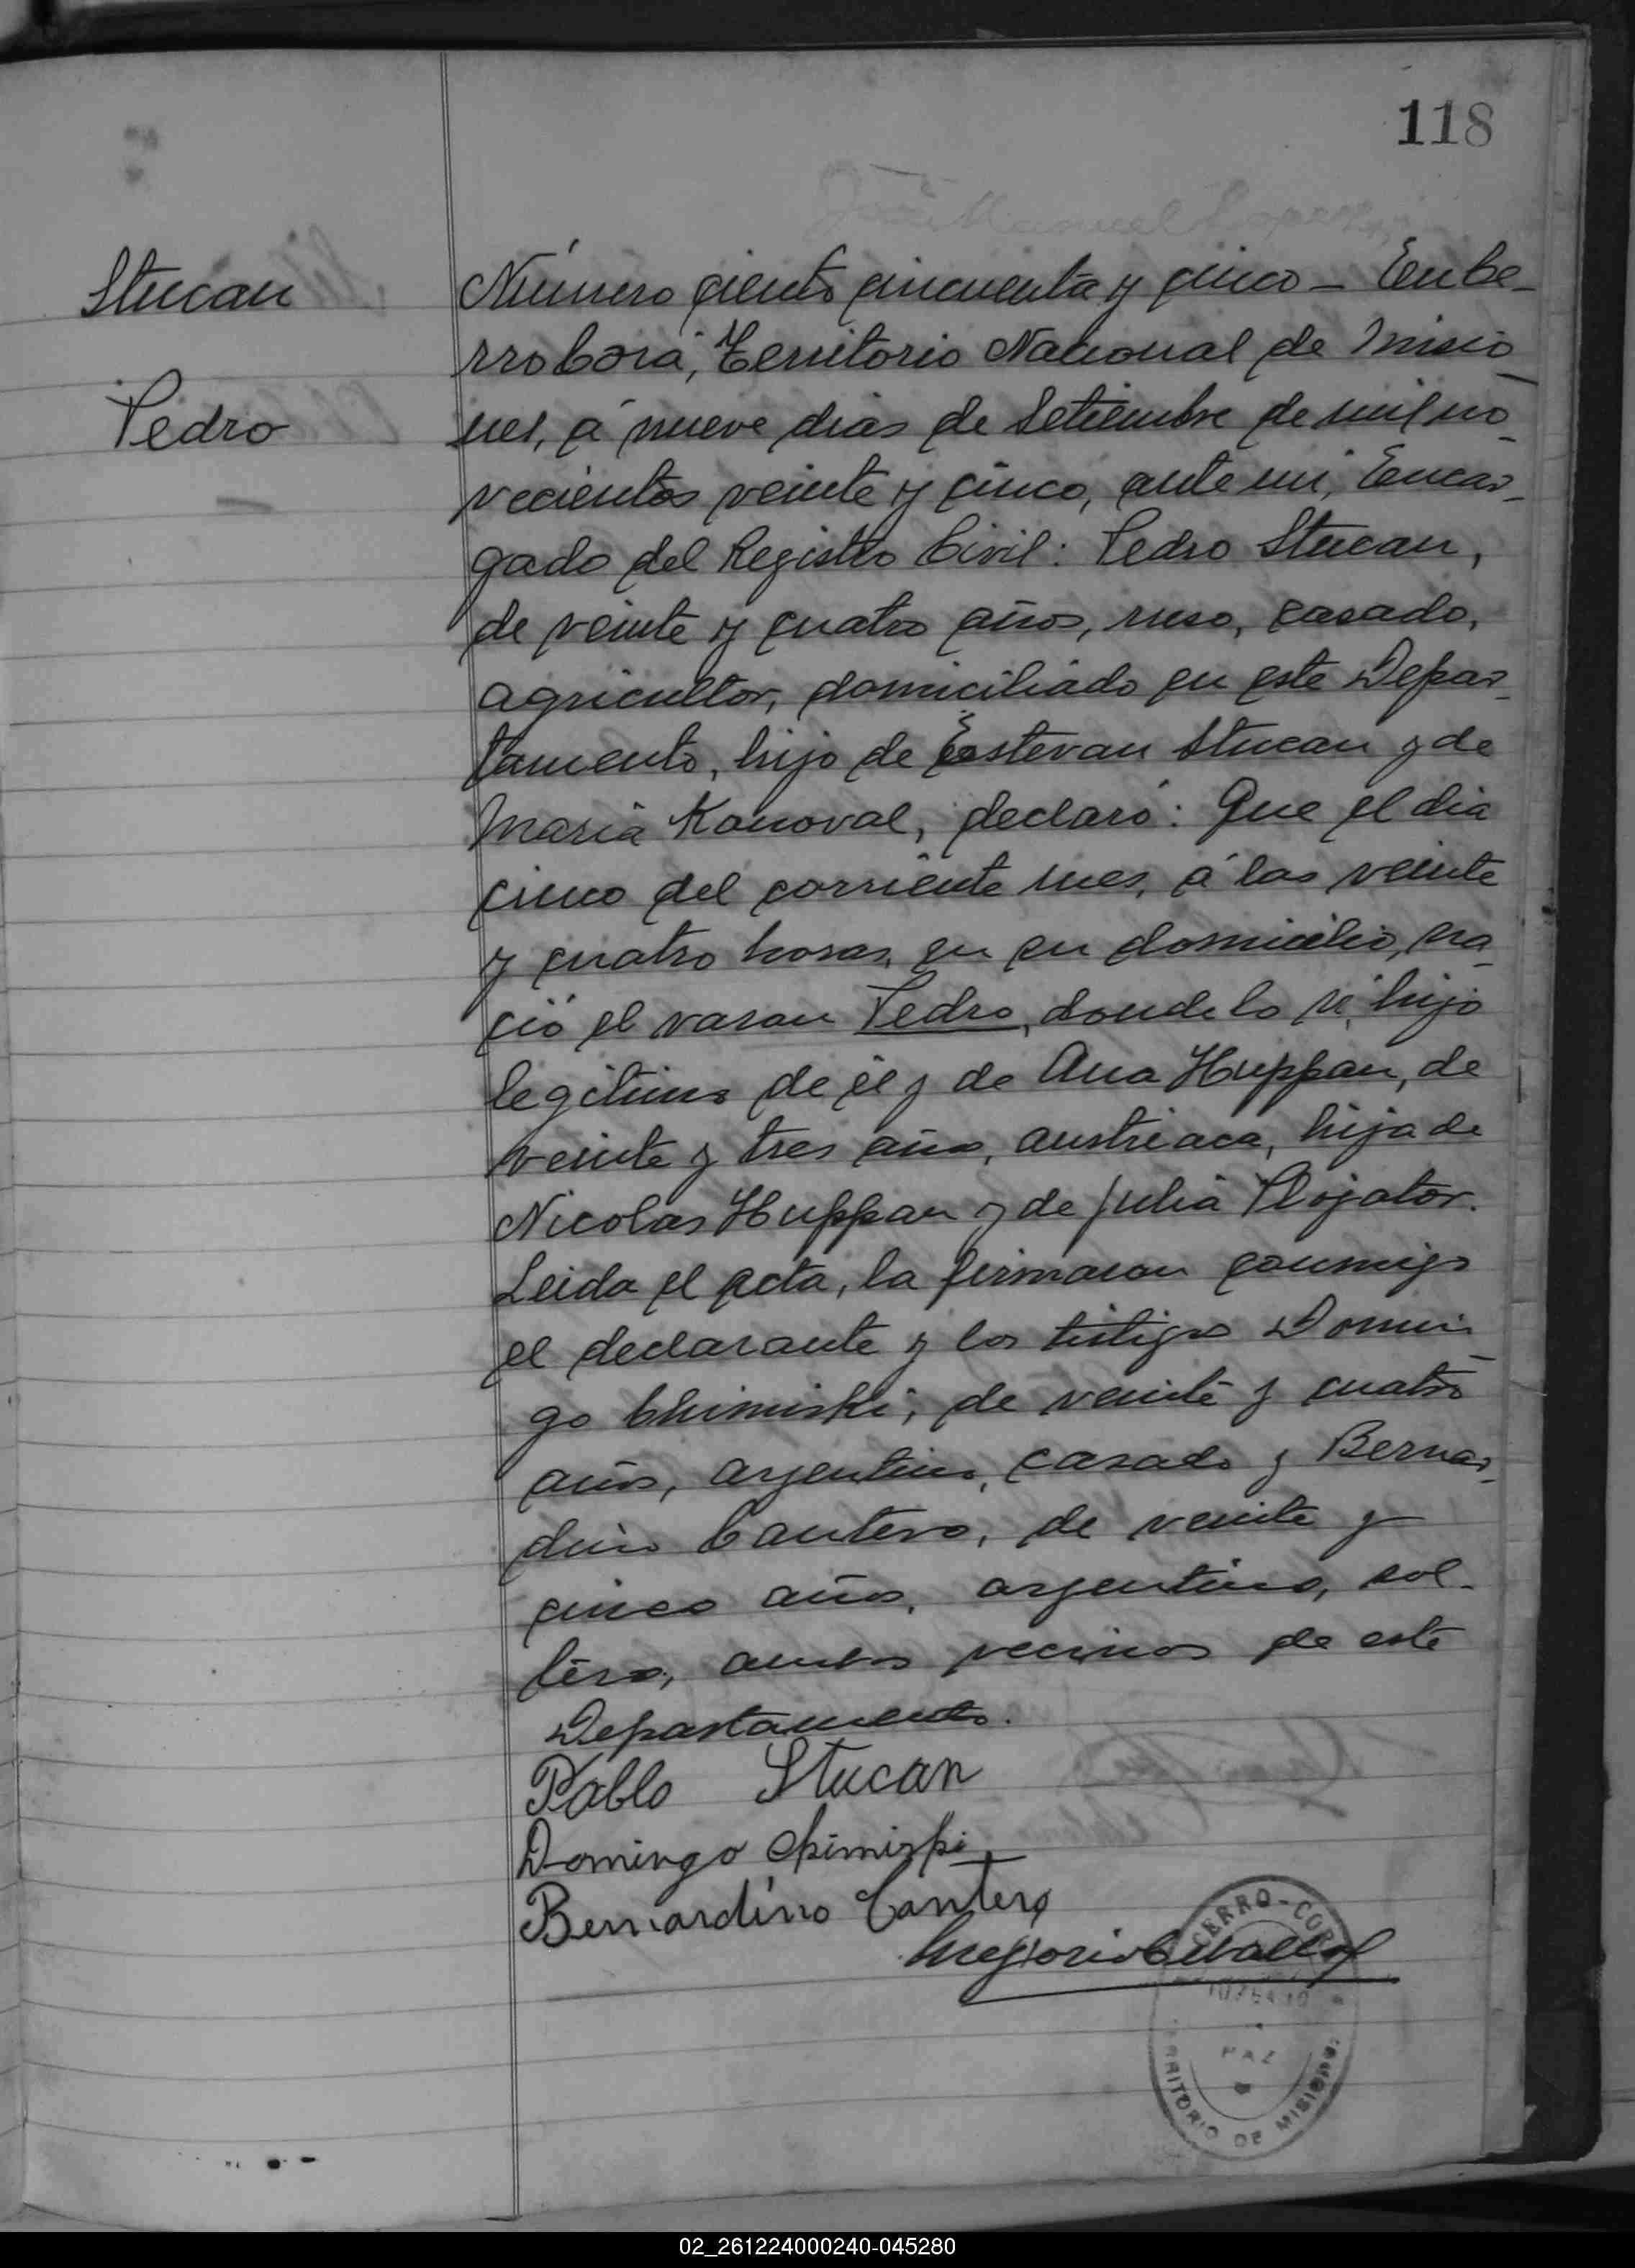 118
Stucan
Pedro
Número ciento cincuenta y cinco – En Ce-
rro Corá, Territorio Nacional de Misio-
nes, á nueve dias de Setiembre de mil no-
vecientos veinte y cinco, ante mi, Encar-
gado del Registro Civil: Pedro Stucan,
de veinte y cuatro años, ruso, casado,
agricultor, domiciliado en este Depar-
tamento, hijo de Estevan Stucan y de
Maria Kanoval, declaró: Que el dia
cinco del corriente mes, á las veinte
y cuatro horas, en su domicilio, na-
ció el varon Pedro, donde lo vi, hijo
legitimo de él y de Ana Huppan, de
veinte y tres años, austriaca, hija de
Nicolas Huppan y de Julia
Leida el acta, la firmaron conmigo
el declarante y los testigos Domin-
go Chimiski, de veinte y cuatro
años, argentino, casado y Bernar-
dino Cantero, de veinte y
cinco años, argentino, sol-
tero, ambos vecinos de este
Departamento.
Pablo Stucan
Domingo Chimiski
Bernardino Cantero
Gregorio Ceballos
CERRO-COR
PAZ
RRITORIO DE MISIONES
02_261224000240-045280